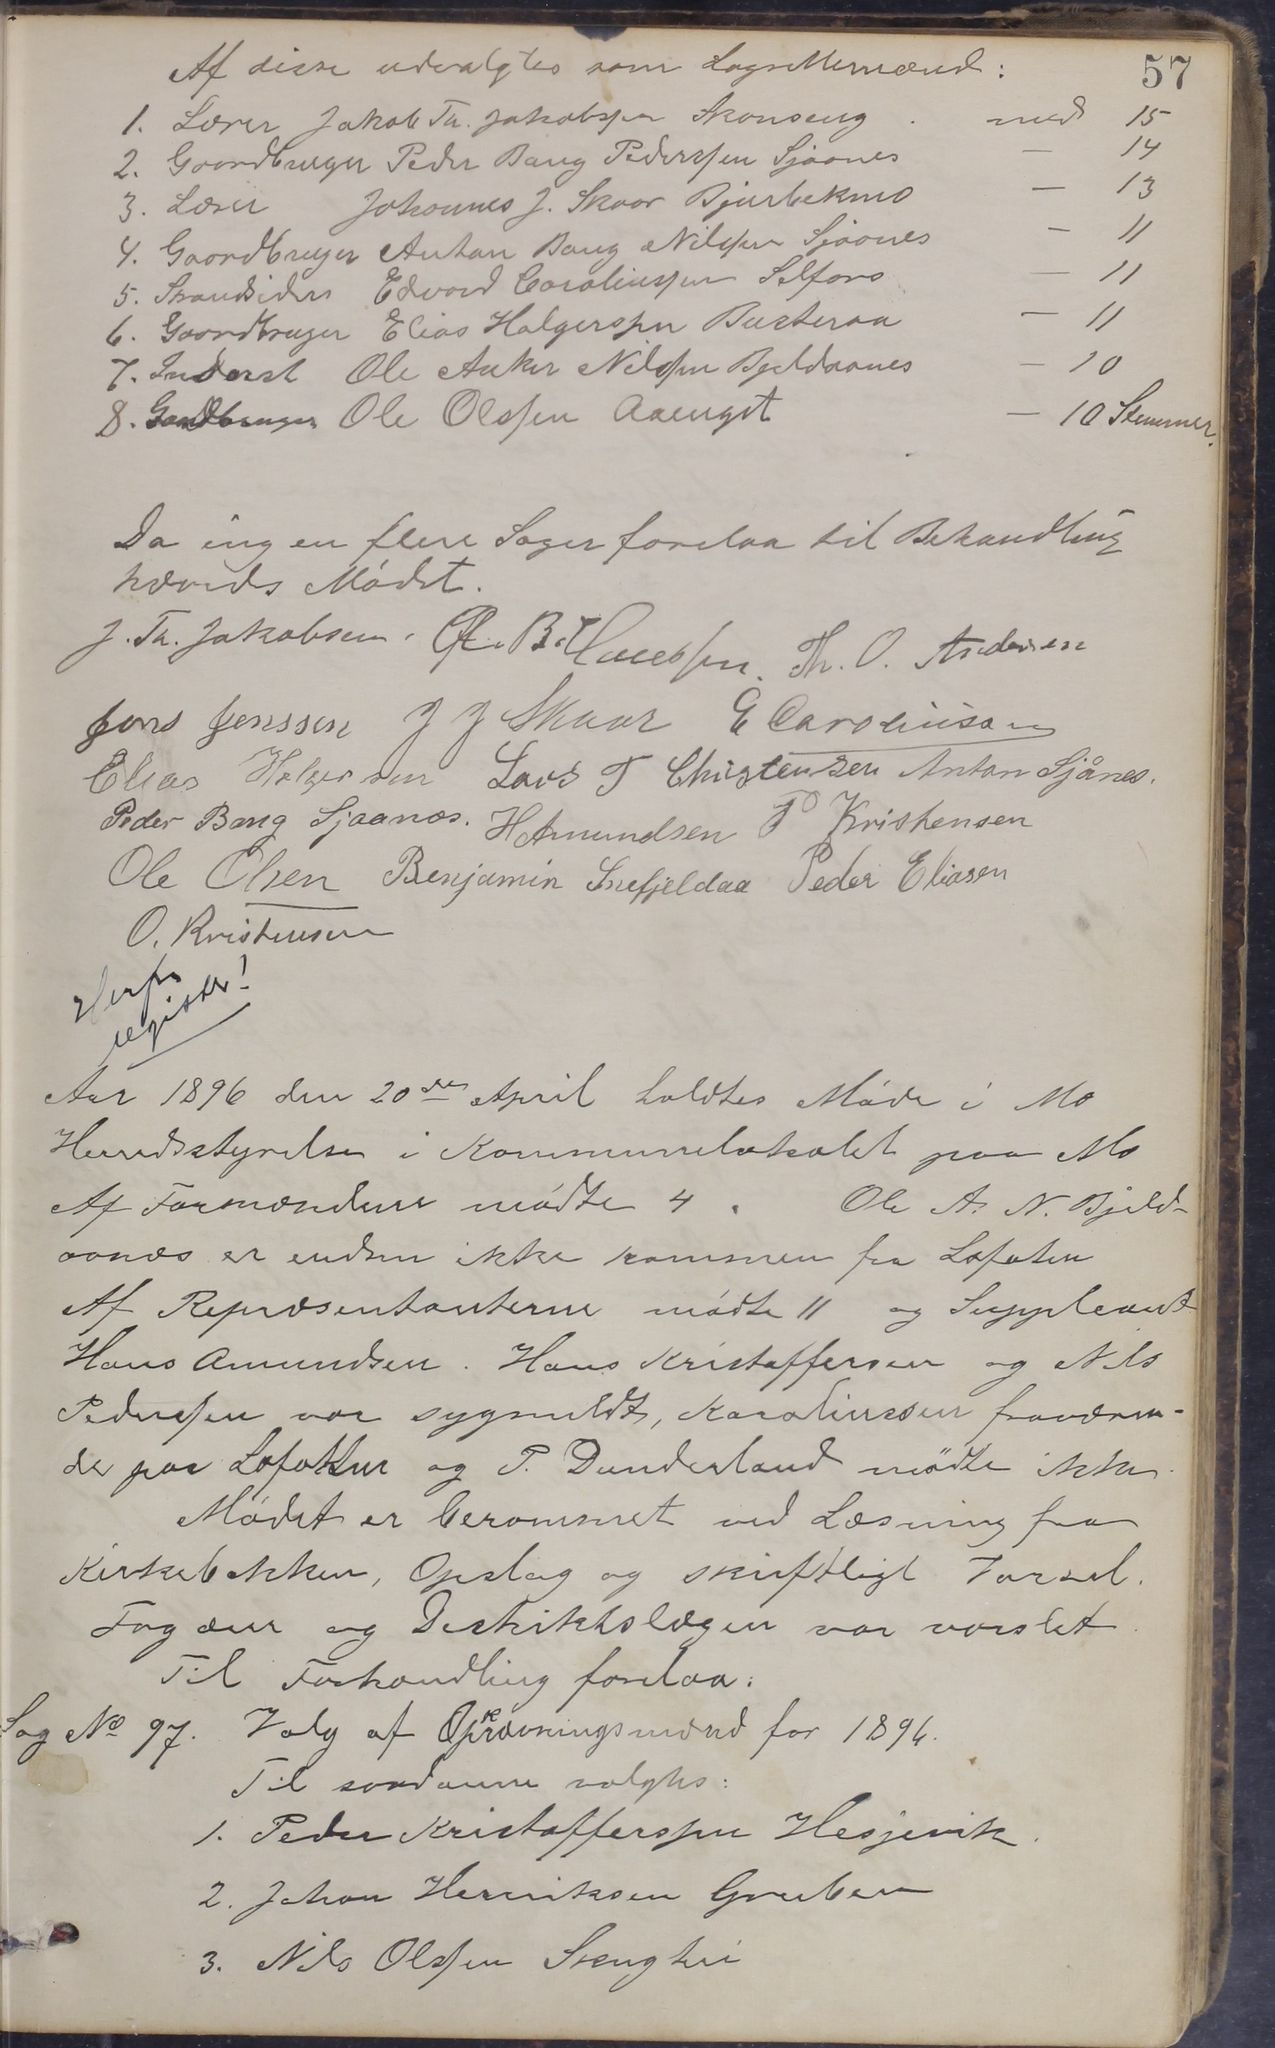 57
Af disse udvalgtes som Lagrettemænd:
1. Lærer Jakob Th. Jakobssen Skonseng . med 15
2. Gaardbruger Peder Bang Pederssen Sjaanes — 14
3. Lærer Johannes J. Skaar Bjerbekmo — 13
4. Gaardbruger Anton Bang Nilssen Sjaanes — 11
5. Strandsidder Edvard Carolinssen Selfors — 11
6. Gaardbruger Elias Holgerssen Busteraa — 11
7. Inderst Ole Anker Nilssen Bjeldaanes — 10
8. Gaardbruger Ole Olssen Aaenget — 10 Stemmer.
Da ingen flere Sager forelaa til Behandling
hævedes Mødet.
J. Th. Jakobsen. Th. O. Andersen
Jens Jenssen J J Skaar E Carolinssen
Elias Holgersen Lars T Christensen Anton Sjånes.
Peder Bang Sjaanæs. H Amundsen P Kristensen
Ole Olsen Benjamin Snefjeldaa Peder Eliasen
O. Kristensen
Herfra
register!
Aar 1896 den 20de April holdtes Møde i Mo
Herredsstyrelse i Kommunelokalet paa Mo
Af Formændene mødte 4. Ole A. N. Bjeld-
aanæs er endnu ikke kommen fra Lofoten
Af Repræsentanterne mødte 11 og Suppleant
Hans Amundsen. Hans Kristoffersen og Nils
Pederssen var sygmeldt, Karolinssen fraværen-
de paa Lofottur og P. Dunderland mødte ikke.
Mødet er berammet ved Læsning fra
Kirkebakken, Opslag og skriftligt Varsel.
Fogden og Distriktslægen var varslet.
Til Forhandling forelaa:
Sag No 97. Valg af Opkrævningsmænd for 1896.
Til saadanne valgtes:
1. Peder Kristofferssen Hesjevik.
2. Johan Henriksen Gruben
3. Nils Olssen Stenghei